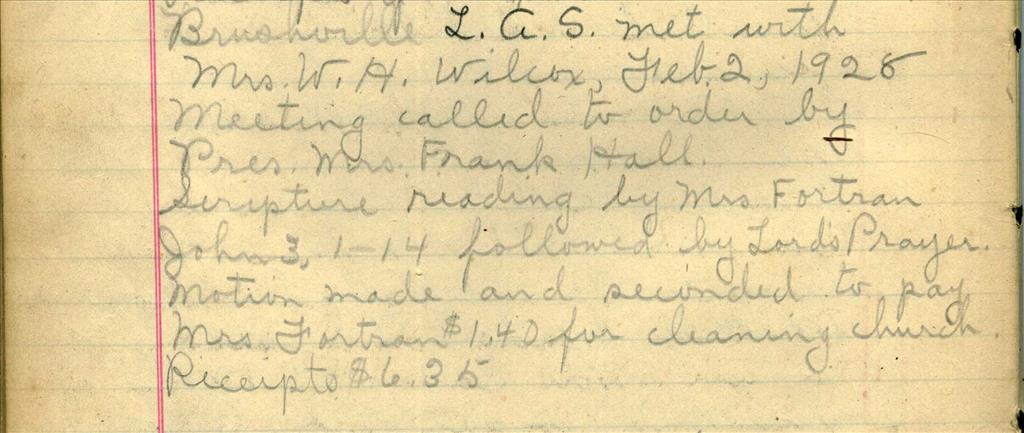 Brushville L.A.S. met with
Mrs. W. H. Wilcox, Feb. 2, 1928
Meeting called to order by
Pres. Mrs. Frank Hall.
Scripture reading by Mrs Fortran
John 3, 1-14 followed by Lord's Prayer.
Motion made and seconded to pay
Mrs. Fortran $1.40 for cleaning church.
Receipts $6.35